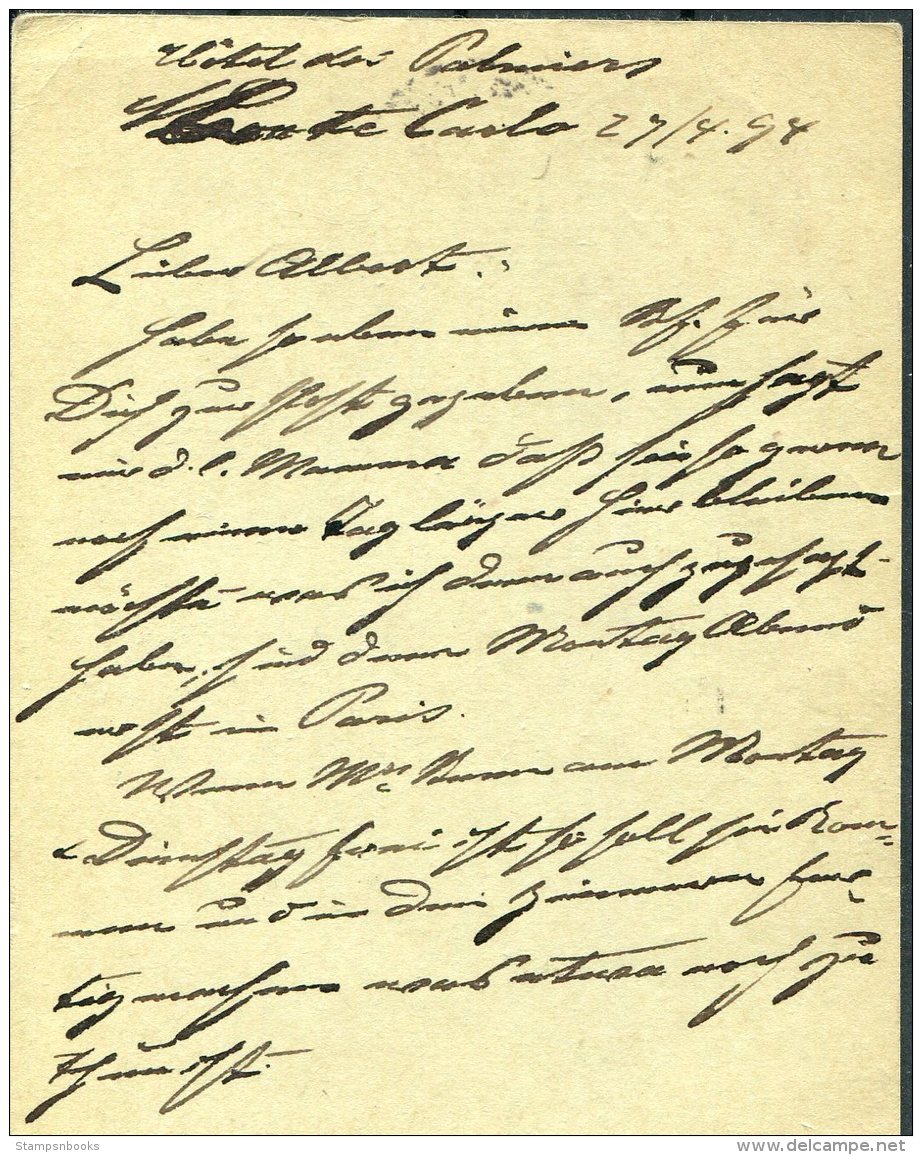 Hôtel des Palmiers
Monte Carlo 27/4.94
Lieber Albert:
Habe so eben einen Bf. für
Dich zur Post gegeben, nun sagt
mir d. l. Mamma daß sie so gern
noch einen Tag länger hier bleiben
möchte was ich denn auch zugesagt
habe, sind dann Montag Abend
erst in Paris.
Wenn Mrs am Montag
& Dienstag frei ist so soll sie kom=
men und in den Zimmern fer=
tig machen was etwa noch zu
thun ist.
Stampsnbooks
www.delcampe.net